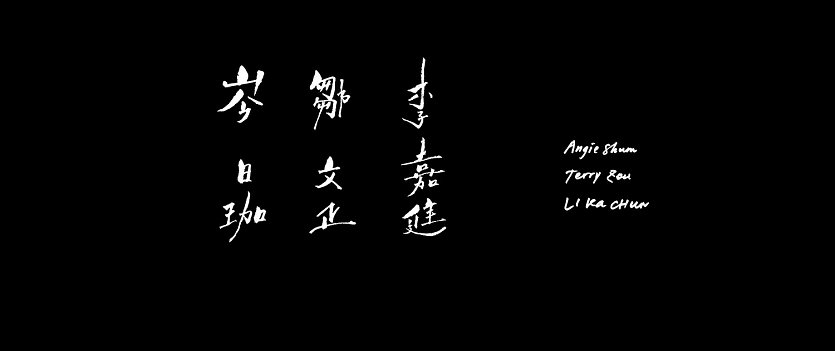 岑日珈
鄒文正
李嘉進
Angie Shum
Terry Zou
LI Ka CHUN